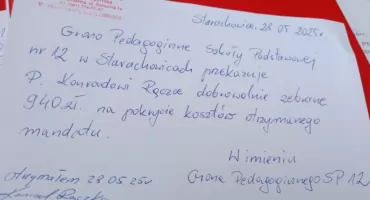 Starachowice, 28 05 2025r
Grono Pedagogiczne Szkoły Podstawowej
nr 12 w Starachowicach przekazuje
P. Konradowi Rączce dobrowolnie zebrane
940 zł. na pokrycie kosztów otrzymanego
mandatu.
W imieniu
Grona Pedagogicznego SP 12
otrzymałem 28 05 25r